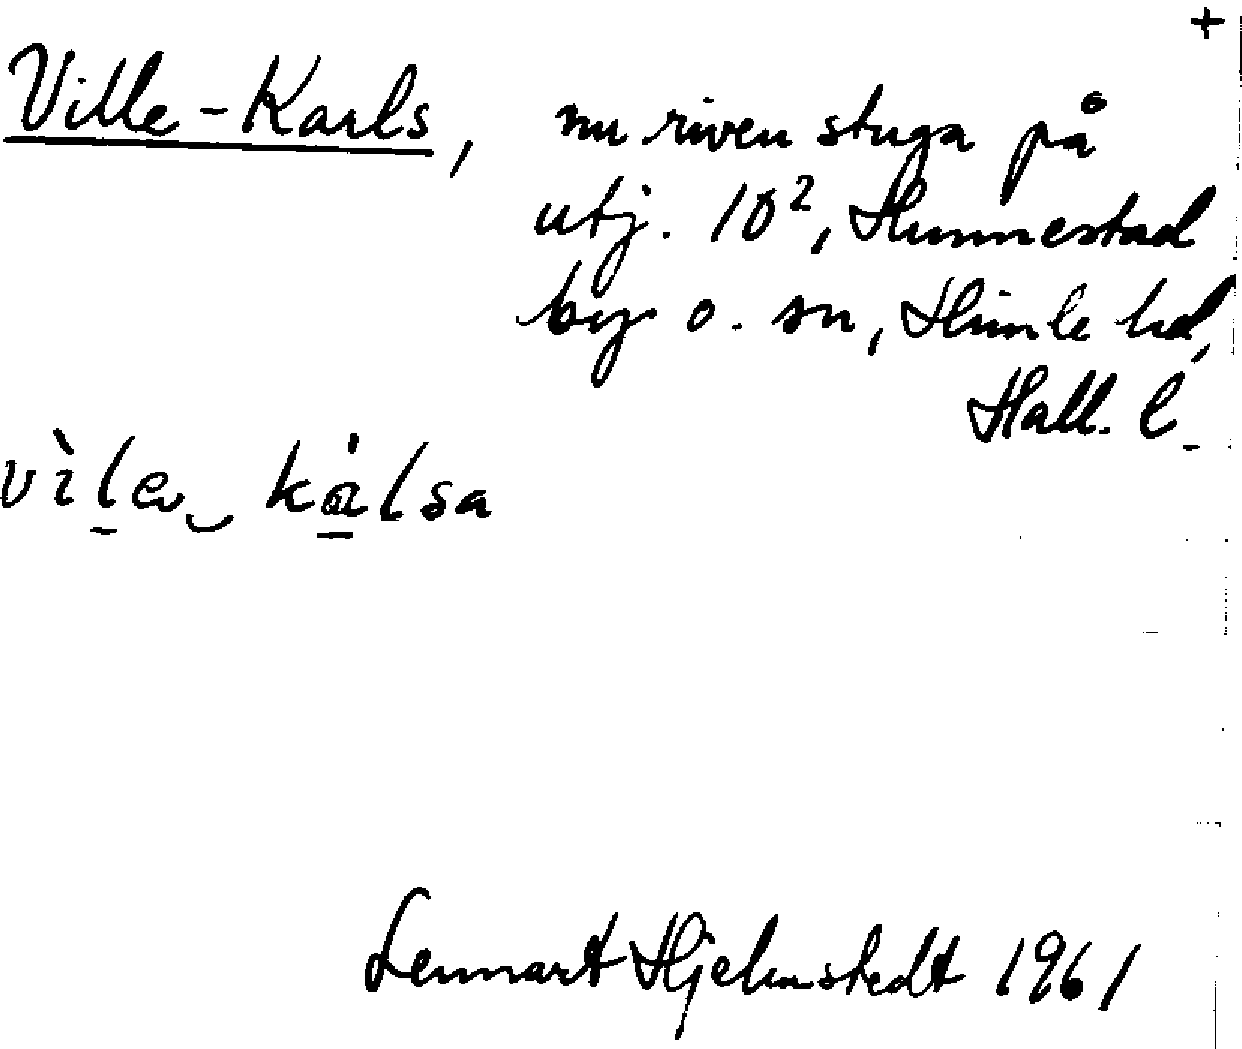 +
Ville-Karls, nu riven stuga på
utj. 10², Hunnestad
by o. sn, Himle hd,
Hall. l.
vìle‿ kálsa
Lennart Hjelmstedt 1961